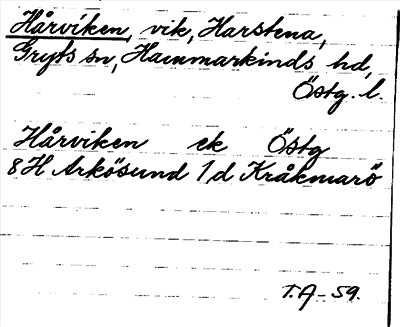 Hårviken, vik, Harstena,
Gryts sn, Hammarkinds hd,
Östg. l.
Hårviken ek Östg
8H Arkösund 1d Kråkmarö
T.A-59.